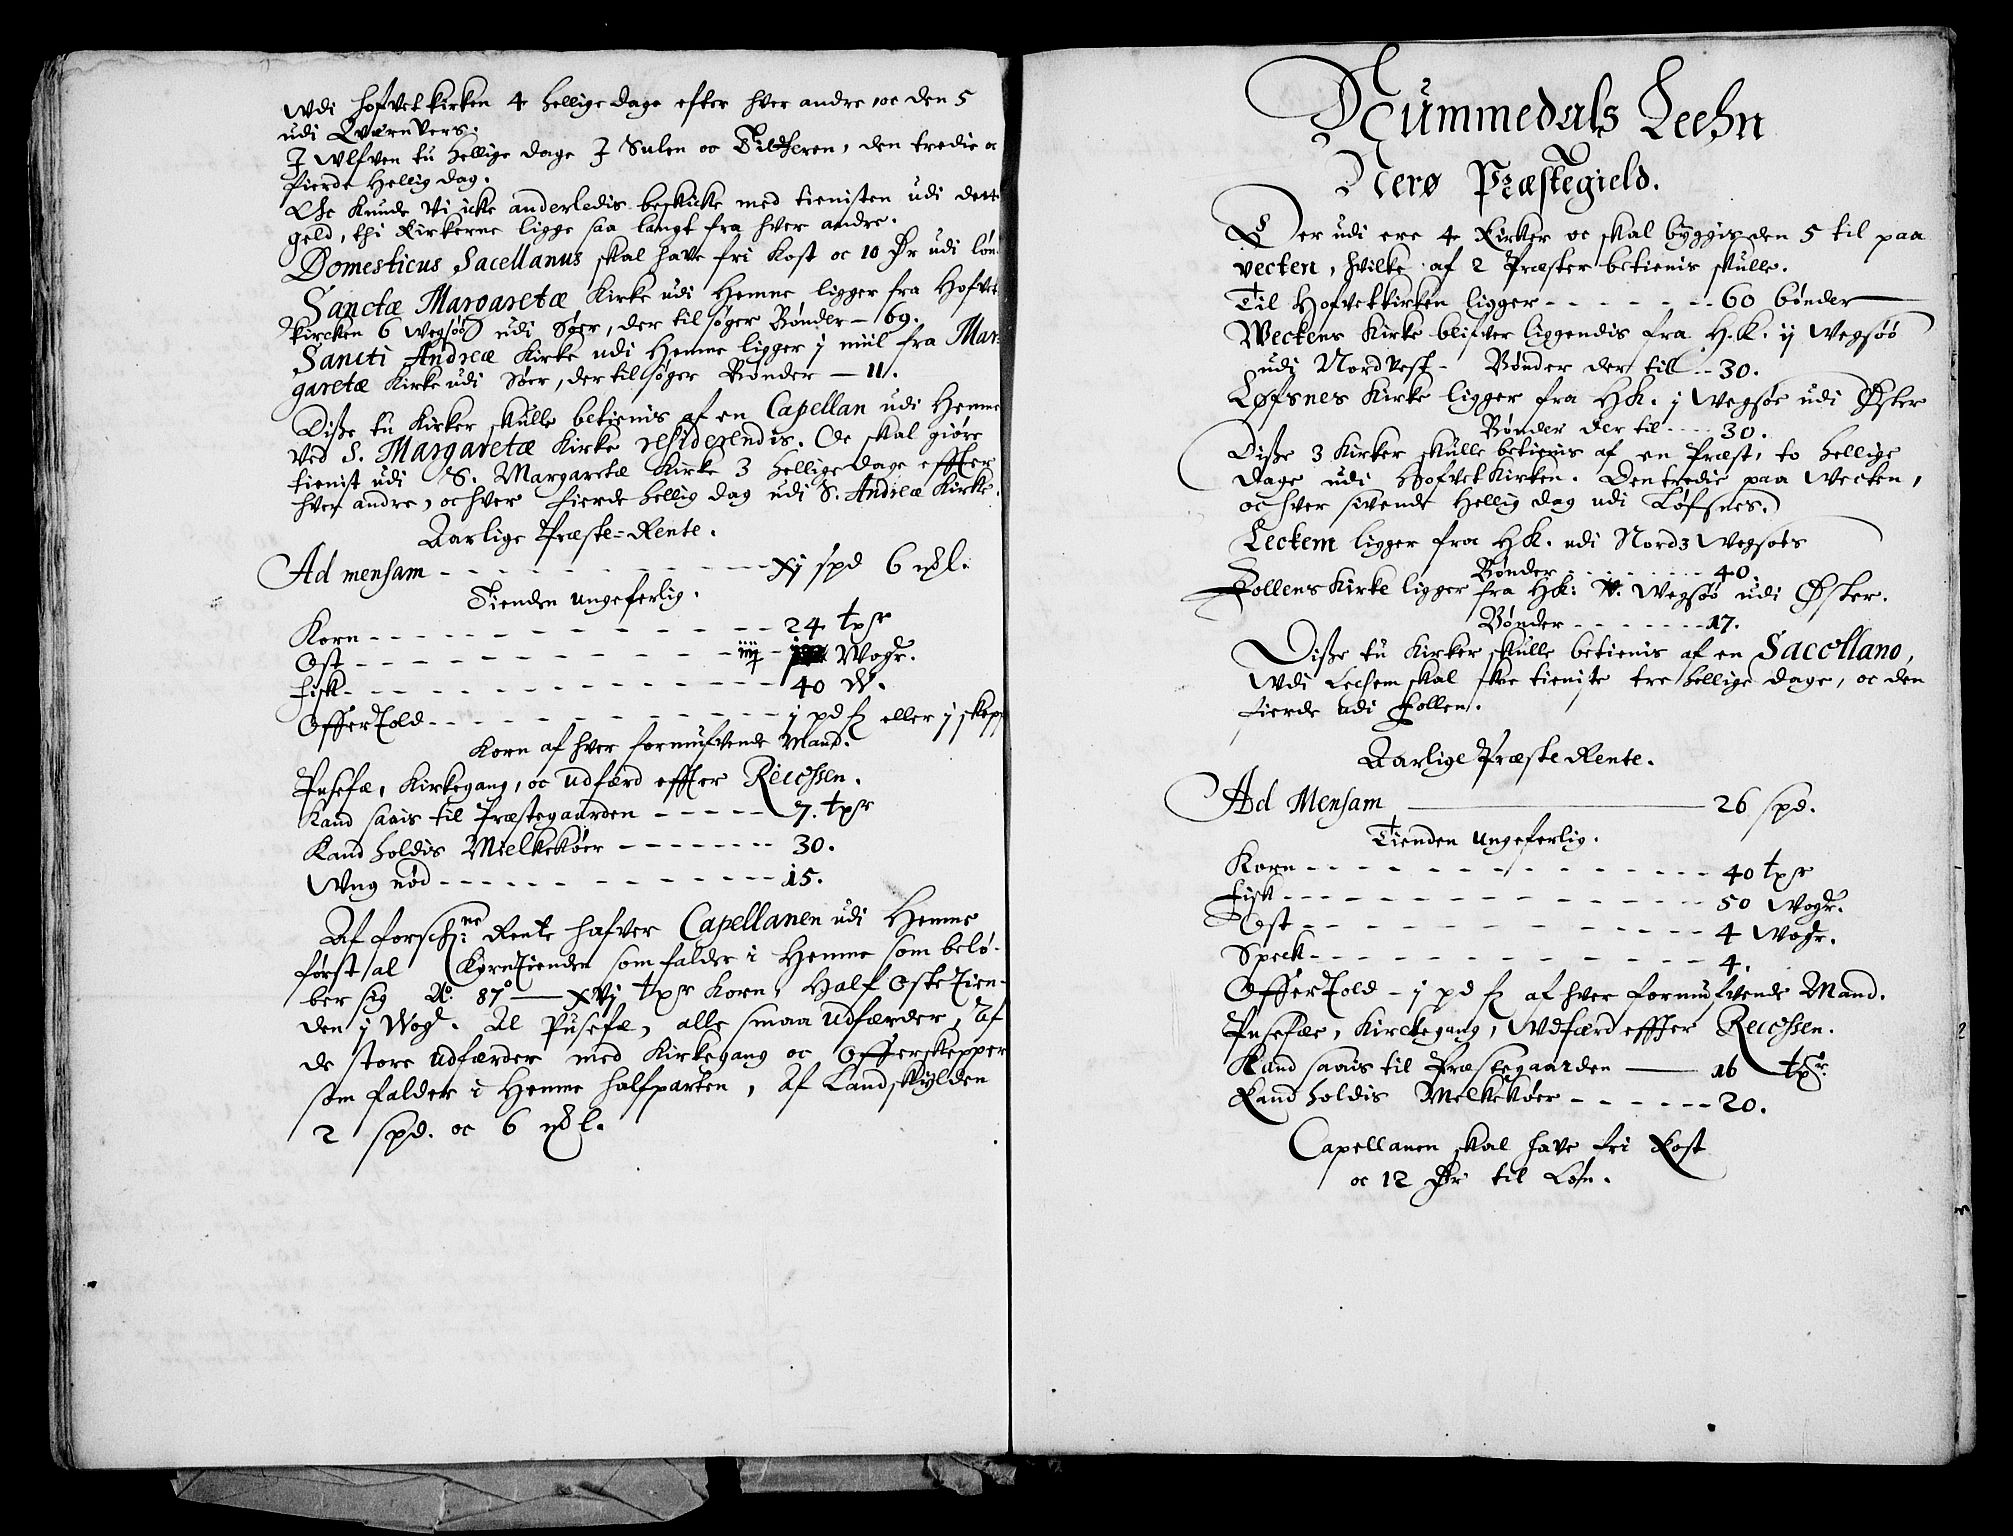 Wdi Hofvetkirken 4 hellige dage efter hver andre, oc den 5
udi Qværnvers.
J Ulfven tu hellige dage J Sulen oc Titheren, den tredie oc
fierde Hellig dag.
Oc kunde vi icke anderledis beskicke med tienisten udi dette
geld, thi Kirkerne ligge saa langt fra hver andre.
Domesticus Sacellanus skal have fri Kost oc 10 Dr udi løn.
Sanctæ Margaretæ Kirke udi Hemne ligger fra Hofvet
kircken 6 Wegsøs udi Sør, der til søger Bønder – 69.
Sancti Andreæ Kirke udi Hemne ligger j miil fra Mar
garetæ Kirke udi Sør, der til søger Bønder – 11.
Disse tu Kirker skulle betienis af en Capellan udi Hemne
ved S. Margaretæ Kirke residerendis. Oc skal giøre
tienist udi S. Margaretæ Kirke 3 hellige dage effter
hver andre, oc hver fierde hellig dag udi S. Andreæ Kirke.
Aarlige Præste-Rente.
Ad mensam - - - - - Xj spd 6 mk l.
Tienden ungeferlig.
Korn - - - - - 24 tpr
Ost - - - - - iiij - Wogr.
Fisk - - - - - 40 W.
OfferTold - - - - - j pd eller j skep
Korn af hver formufvende Mand.
Pusefæ, Kirkegang, oc udfærd effter Recessen.
Kand saais til Præstegaarden - - - - - 7. tpr
Kand holdis Mielkekøer - - - - - 30.
Wng nød - - - - - 15.
Af forschne Rente hafver Capellanen udi Hemne
først al KornTienden som falder i Hemne som belø-
ber sig Ao. 87o — XVj tpr Korn, Half OsteTien-
den j Wogr. Al Pusefæ, alle smaa udfærder, Af
de store udfærder med Kirkegang oc Offerskepper
som falder i Hemne halfparten, Af Landskylden
2 spd. oc 6 mk l.
Nummedals Leehn
Nerø Præstegield.
Der udi ere 4 Kirker oc skal byggis den 5 til paa
vecten, hvilke af 2 Præster betienis skulle.
Til Hofvetkirken ligger - - - - - 60 bønder
Wectens Kirke blifver liggendis fra H.K. ij Wegsøs
udi Nordvest - Bønder der till - - 30.
Løfsnes Kirke ligger fra HK. j Wegsøs udi Øster
Bønder der til - - - 30.
Disse 3 Kirker skulle betienis af en Præst, to hellige
dage udi HofvetKirken. Den tredie paa Wecten,
oc hver sivende Hellig dag udi Løfsnes.
Leckem ligger fra HK. udi Nord 3 Wegsøes
Bønder - - - - - 40
Follens Kirke ligger fra HK: V. Wegsøs udi Øster.
Bønder - - - - - 17.
Disse tu Kirker skulle betienis af en Sacellano,
Wdi Lechem skal skee tieniste tre hellige dage, oc den
fierde udi Follen.
Aarlige Præste Rente.
Ad Mensam ——— 26 spd.
Tienden ungeferlig.
Korn - - - - - 40 tpr
Fisk - - - - - 50 Wogr.
Ost - - - - - 4 Wogr.
Speck - - - - - 4.
OfferTold - j pd af hver formufvende Mand.
Pusefæe, Kirckegang, Wdfærd effter Recessen.
Kand saais til Præstegaarden —— 16 tpr.
Kand holdis Melkekøer - - - - - 20.
Capellanen skal have fri Kost
oc 12 Dr til Løn.